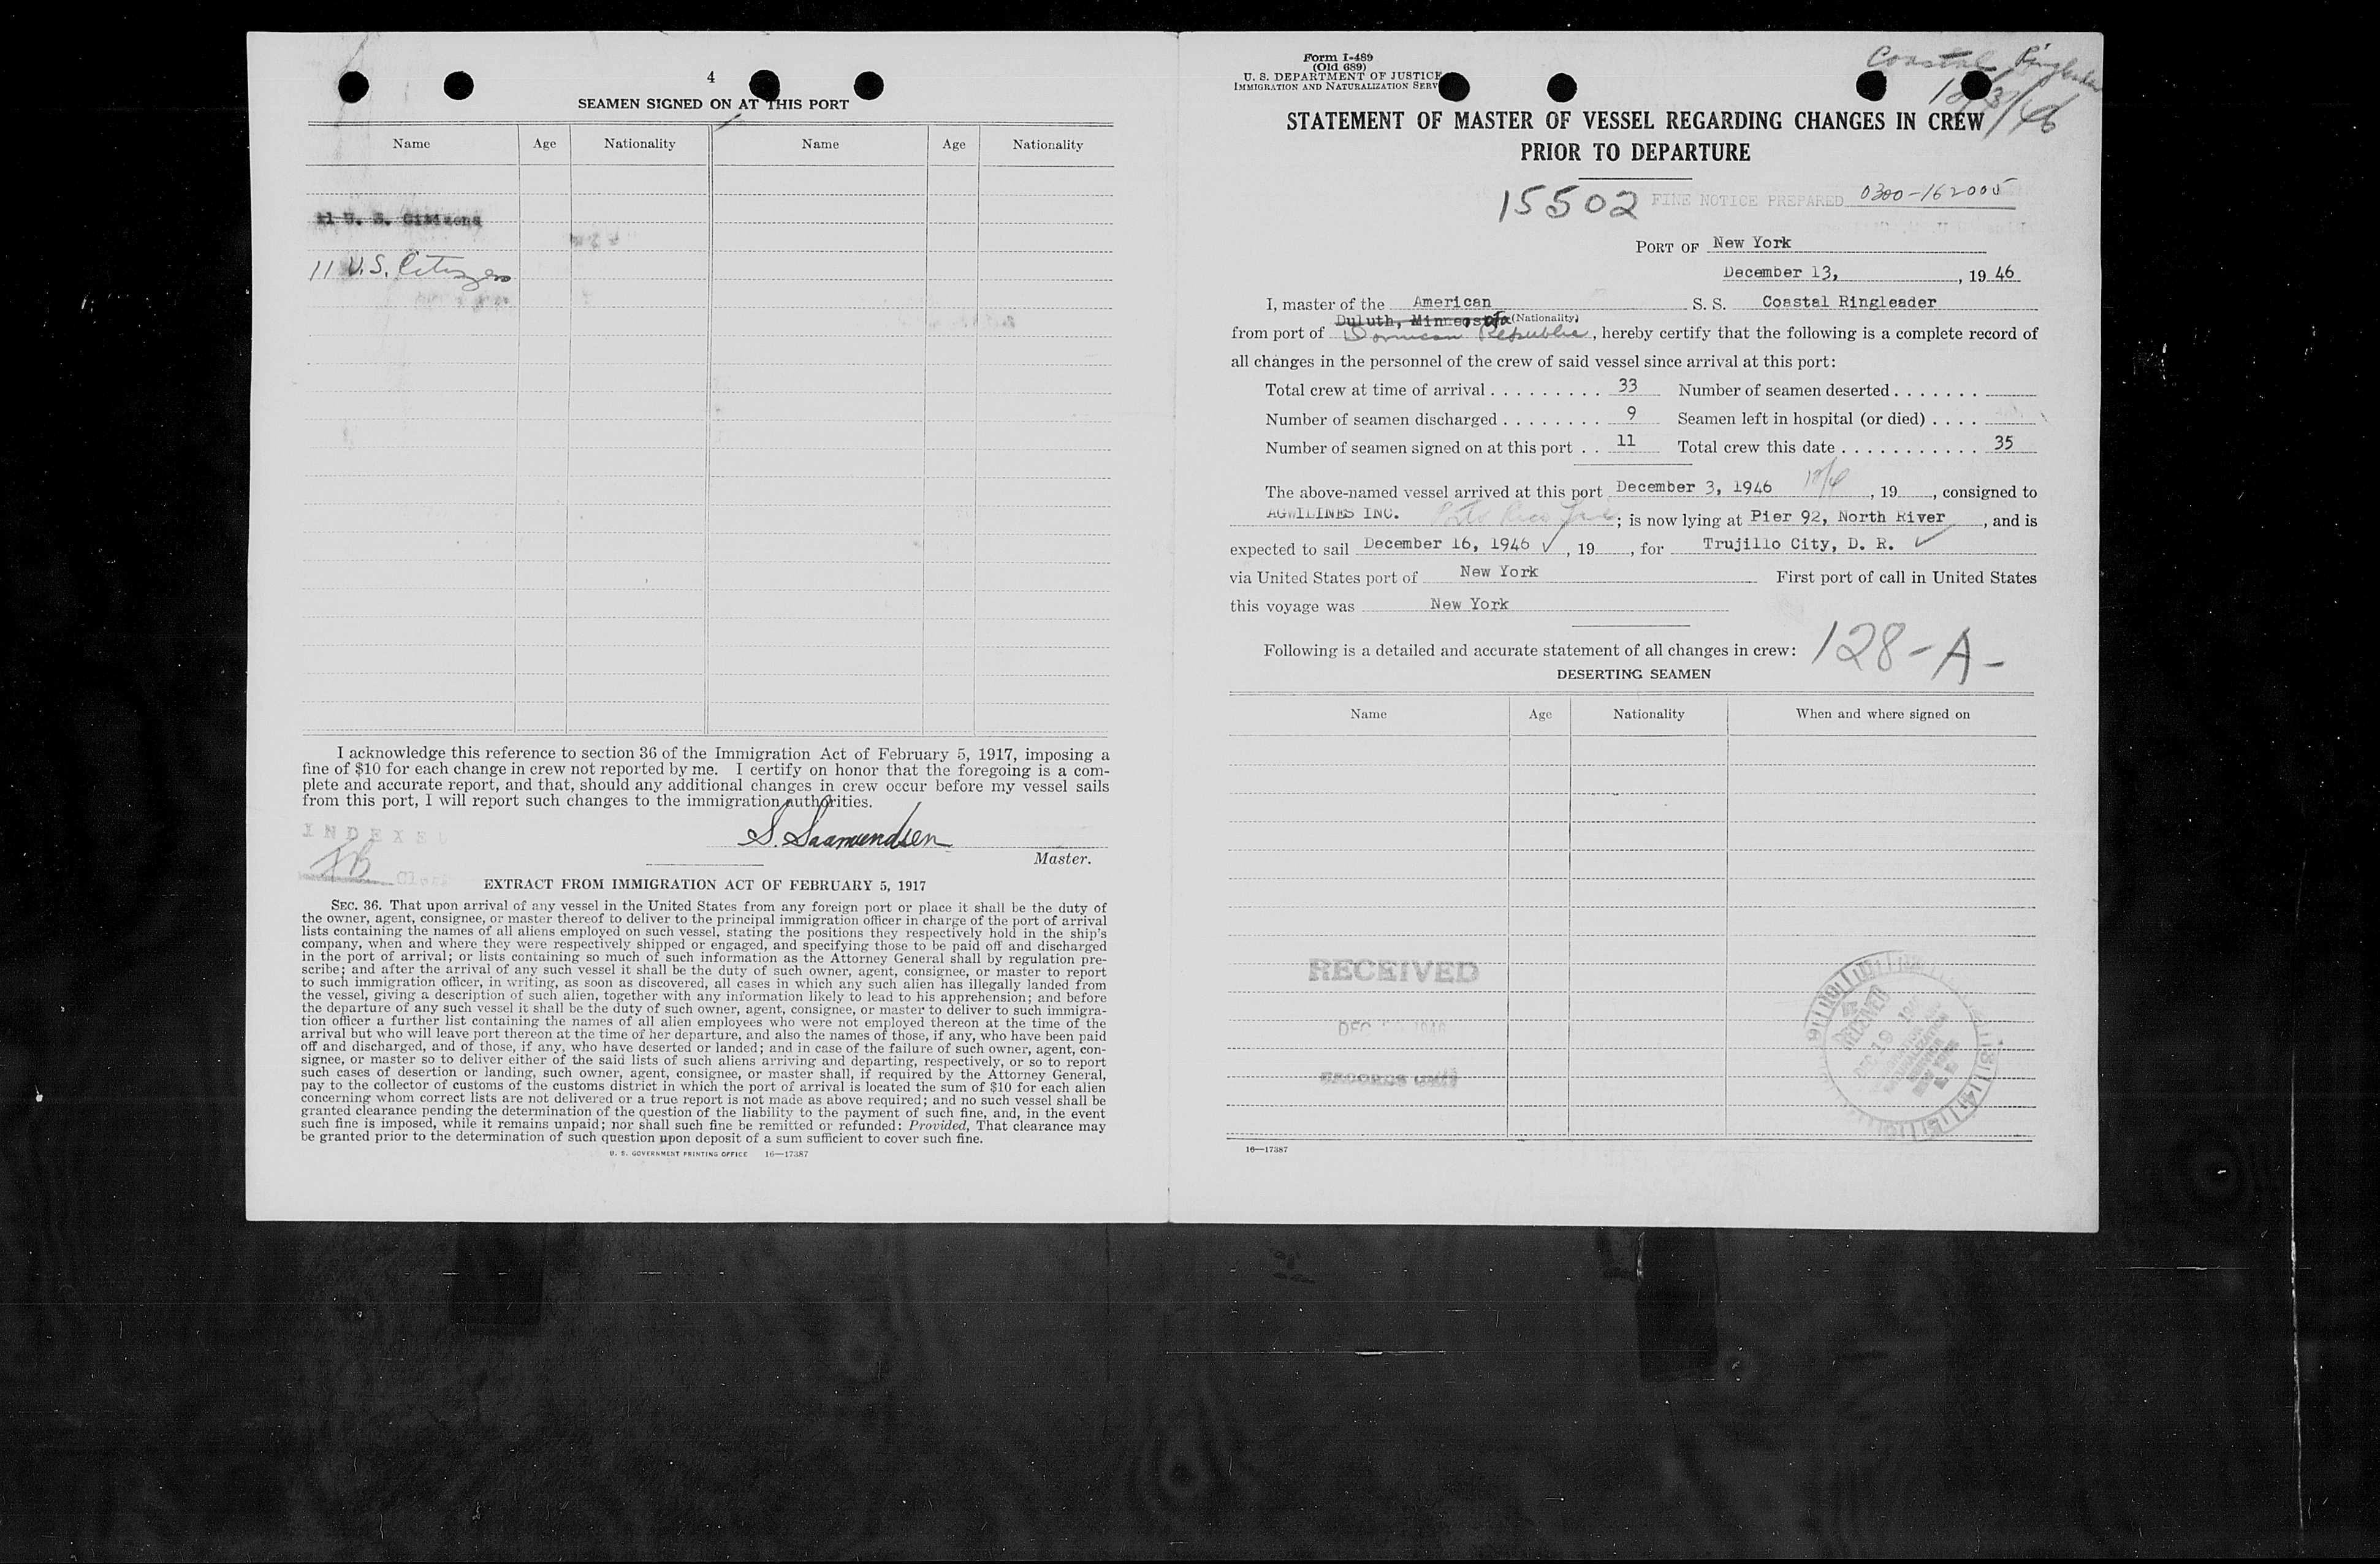 4
SEAMEN SIGNED ON AT THIS PORT
Name Age Nationality Name Age Nationality
11 U. S. Citizens
11 U.S. Citizens
I acknowledge this reference to section 36 of the Immigration Act of February 5, 1917, imposing a
fine of $10 for each change in crew not reported by me. I certify on honor that the foregoing is a com-
plete and accurate report, and that, should any additional changes in crew occur before my vessel sails
from this port, I will report such changes to the immigration authorities.
INDEXED
S. Saamundsen
Master.
EXTRACT FROM IMMIGRATION ACT OF FEBRUARY 5, 1917
SEC. 36. That upon arrival of any vessel in the United States from any foreign port or place it shall be the duty of
the owner, agent, consignee, or master thereof to deliver to the principal immigration officer in charge of the port of arrival
lists containing the names of all aliens employed on such vessel, stating the positions they respectively hold in the ship's
company, when and where they were respectively shipped or engaged, and specifying those to be paid off and discharged
in the port of arrival; or lists containing so much of such information as the Attorney General shall by regulation pre-
scribe; and after the arrival of any such vessel it shall be the duty of such owner, agent, consignee, or master to report
to such immigration officer, in writing, as soon as discovered, all cases in which any such alien has illegally landed from
the vessel, giving a description of such alien, together with any information likely to lead to his apprehension; and before
the departure of any such vessel it shall be the duty of such owner, agent, consignee, or master to deliver to such immigra-
tion officer a further list containing the names of all alien employees who were not employed thereon at the time of the
arrival but who will leave port thereon at the time of her departure, and also the names of those, if any, who have been paid
off and discharged, and of those, if any, who have deserted or landed; and in case of the failure of such owner, agent, con-
signee, or master so to deliver either of the said lists of such aliens arriving and departing, respectively, or so to report
such cases of desertion or landing, such owner, agent, consignee, or master shall, if required by the Attorney General,
pay to the collector of customs of the customs district in which the port of arrival is located the sum of $10 for each alien
concerning whom correct lists are not delivered or a true report is not made as above required; and no such vessel shall be
granted clearance pending the determination of the question of the liability to the payment of such fine, and, in the event
such fine is imposed, while it remains unpaid; nor shall such fine be remitted or refunded: Provided, That clearance may
be granted prior to the determination of such question upon deposit of a sum sufficient to cover such fine.
U. S. GOVERNMENT PRINTING OFFICE 16—17387
Form I-489
(Old 689)
U. S. DEPARTMENT OF JUSTICE
IMMIGRATION AND NATURALIZATION SERV
Coastal Ringleader
12/3/46
STATEMENT OF MASTER OF VESSEL REGARDING CHANGES IN CREW
PRIOR TO DEPARTURE
15502 FINE NOTICE PREPARED 0300-162005
PORT OF New York
December 13, , 19 46
I, master of the American S. S. Coastal Ringleader
Duluth, Minnesota (Nationality)
from port of Dominican Republic, hereby certify that the following is a complete record of
all changes in the personnel of the crew of said vessel since arrival at this port:
Total crew at time of arrival 33 Number of seamen deserted
Number of seamen discharged 9 Seamen left in hospital (or died)
Number of seamen signed on at this port 11 Total crew this date 35
The above-named vessel arrived at this port December 3, 1946 , 19 , consigned to
AGWILINES INC. Porto Rico ; is now lying at Pier 92, North River , and is
expected to sail December 16, 1946 ✓ , 19 , for Trujillo City, D. R. ✓
via United States port of New York First port of call in United States
this voyage was New York
Following is a detailed and accurate statement of all changes in crew: 128-A-
DESERTING SEAMEN
Name Age Nationality When and where signed on
RECEIVED
DEC 1946
RECORDS UNIT
RECEIVED
16—17387